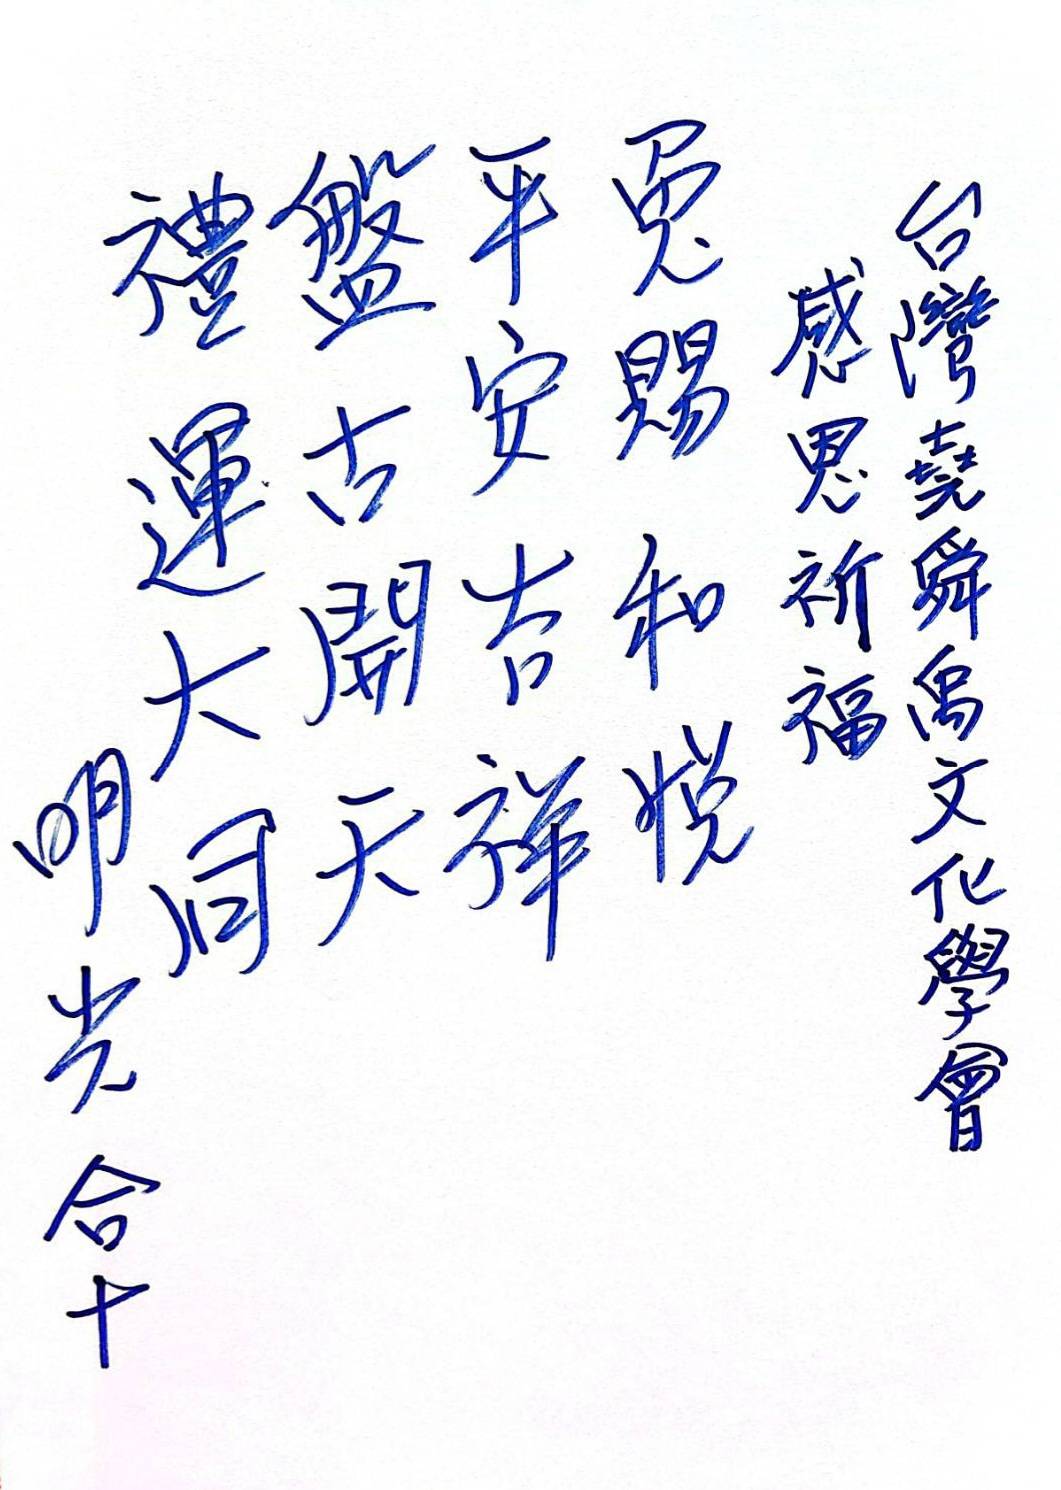 台灣堯舜禹文化學會
感恩祈福
恩賜和悅
平安吉祥
盤古開天
禮運大同
明光合十